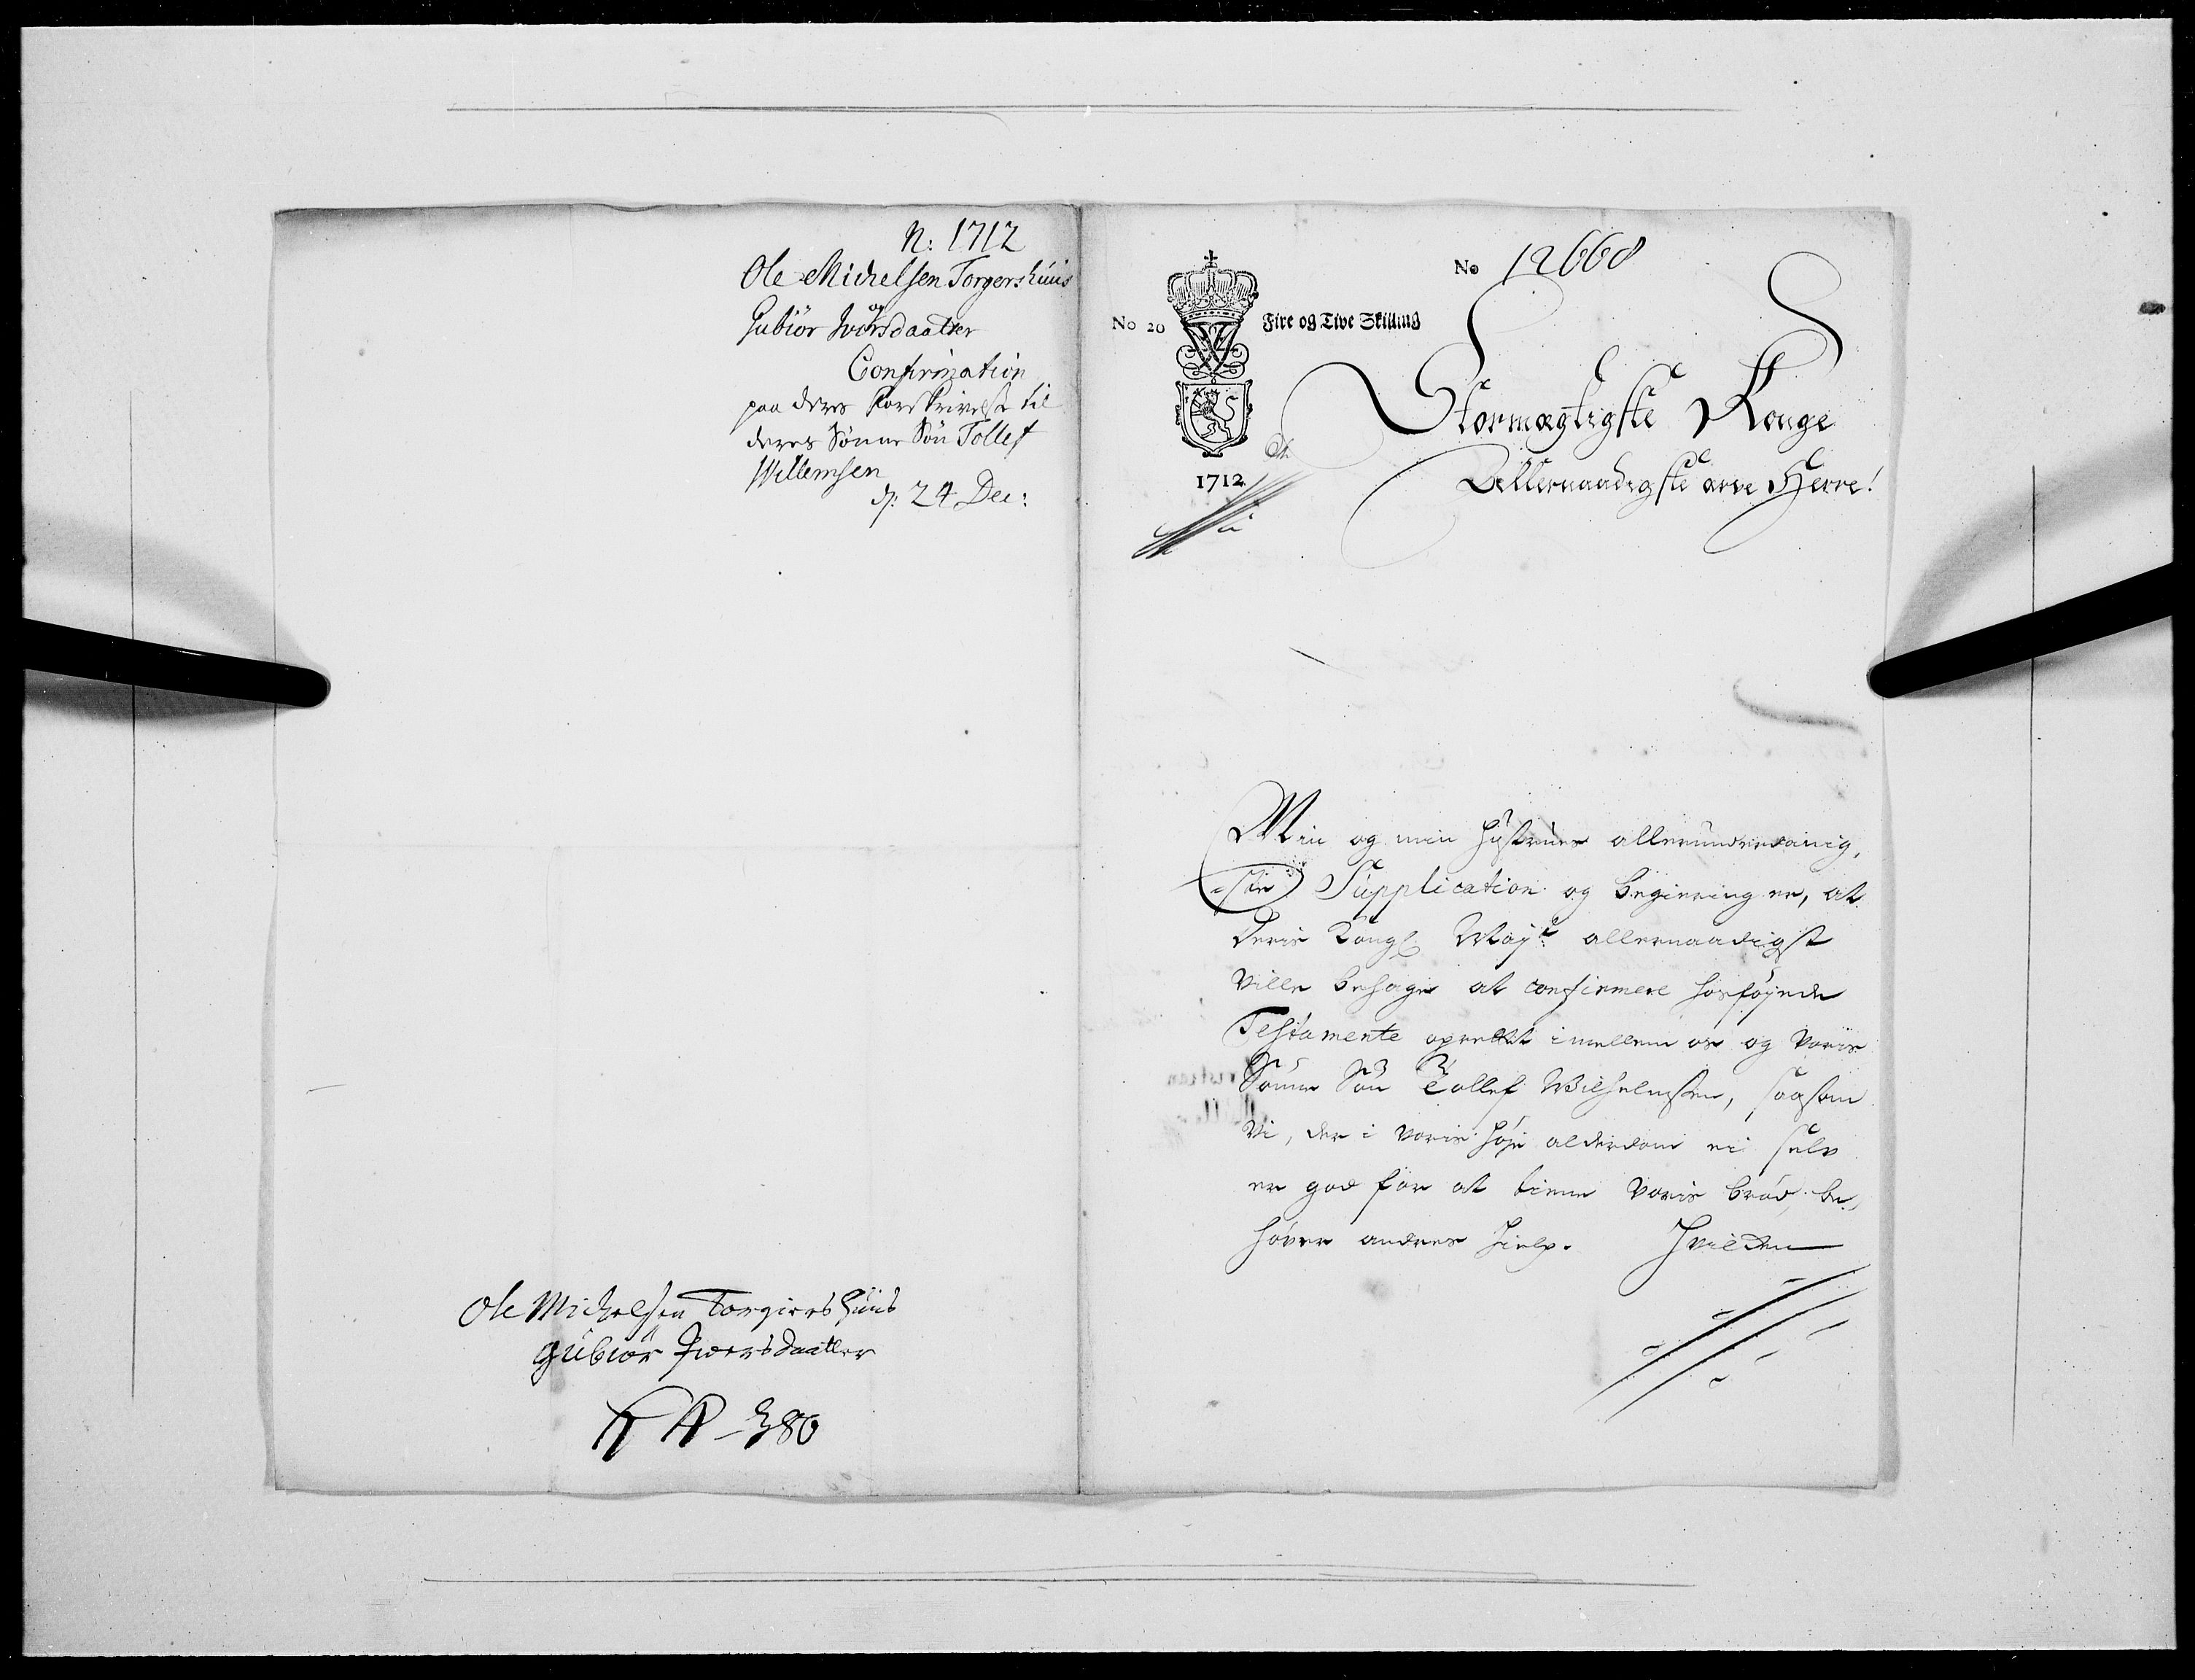 N: 1712
Ole Michelsen Torgershuus
og
Gubiør Iversdaatter
Confirmation
paa deres forskrivelse til
deres Sønne Søn Tollef
Willemsen
d: 24 Dec:
Ole Michelsen Torgiershuus
Gubiør Iversdaatter
380
No 12668
No 20 Fire og Tive Skilling
Stormægtigste Konge
Allernaadigste arve Herre!
1712
Min og min hustrues allerunderdanig,
-ste Supplication og begiering er, at
Deris Kongl. Mayt: allernaadigst
Ville behage at confirmere hosføyede
Testamente oprettet imellem os og Voris
Sønne Søn Tollef Wilhelmsen, saasom
Vi, der i voris høye alderdom ei selv
er god for at tiene Voris brød, be,
høver andres hielp. Hvilken